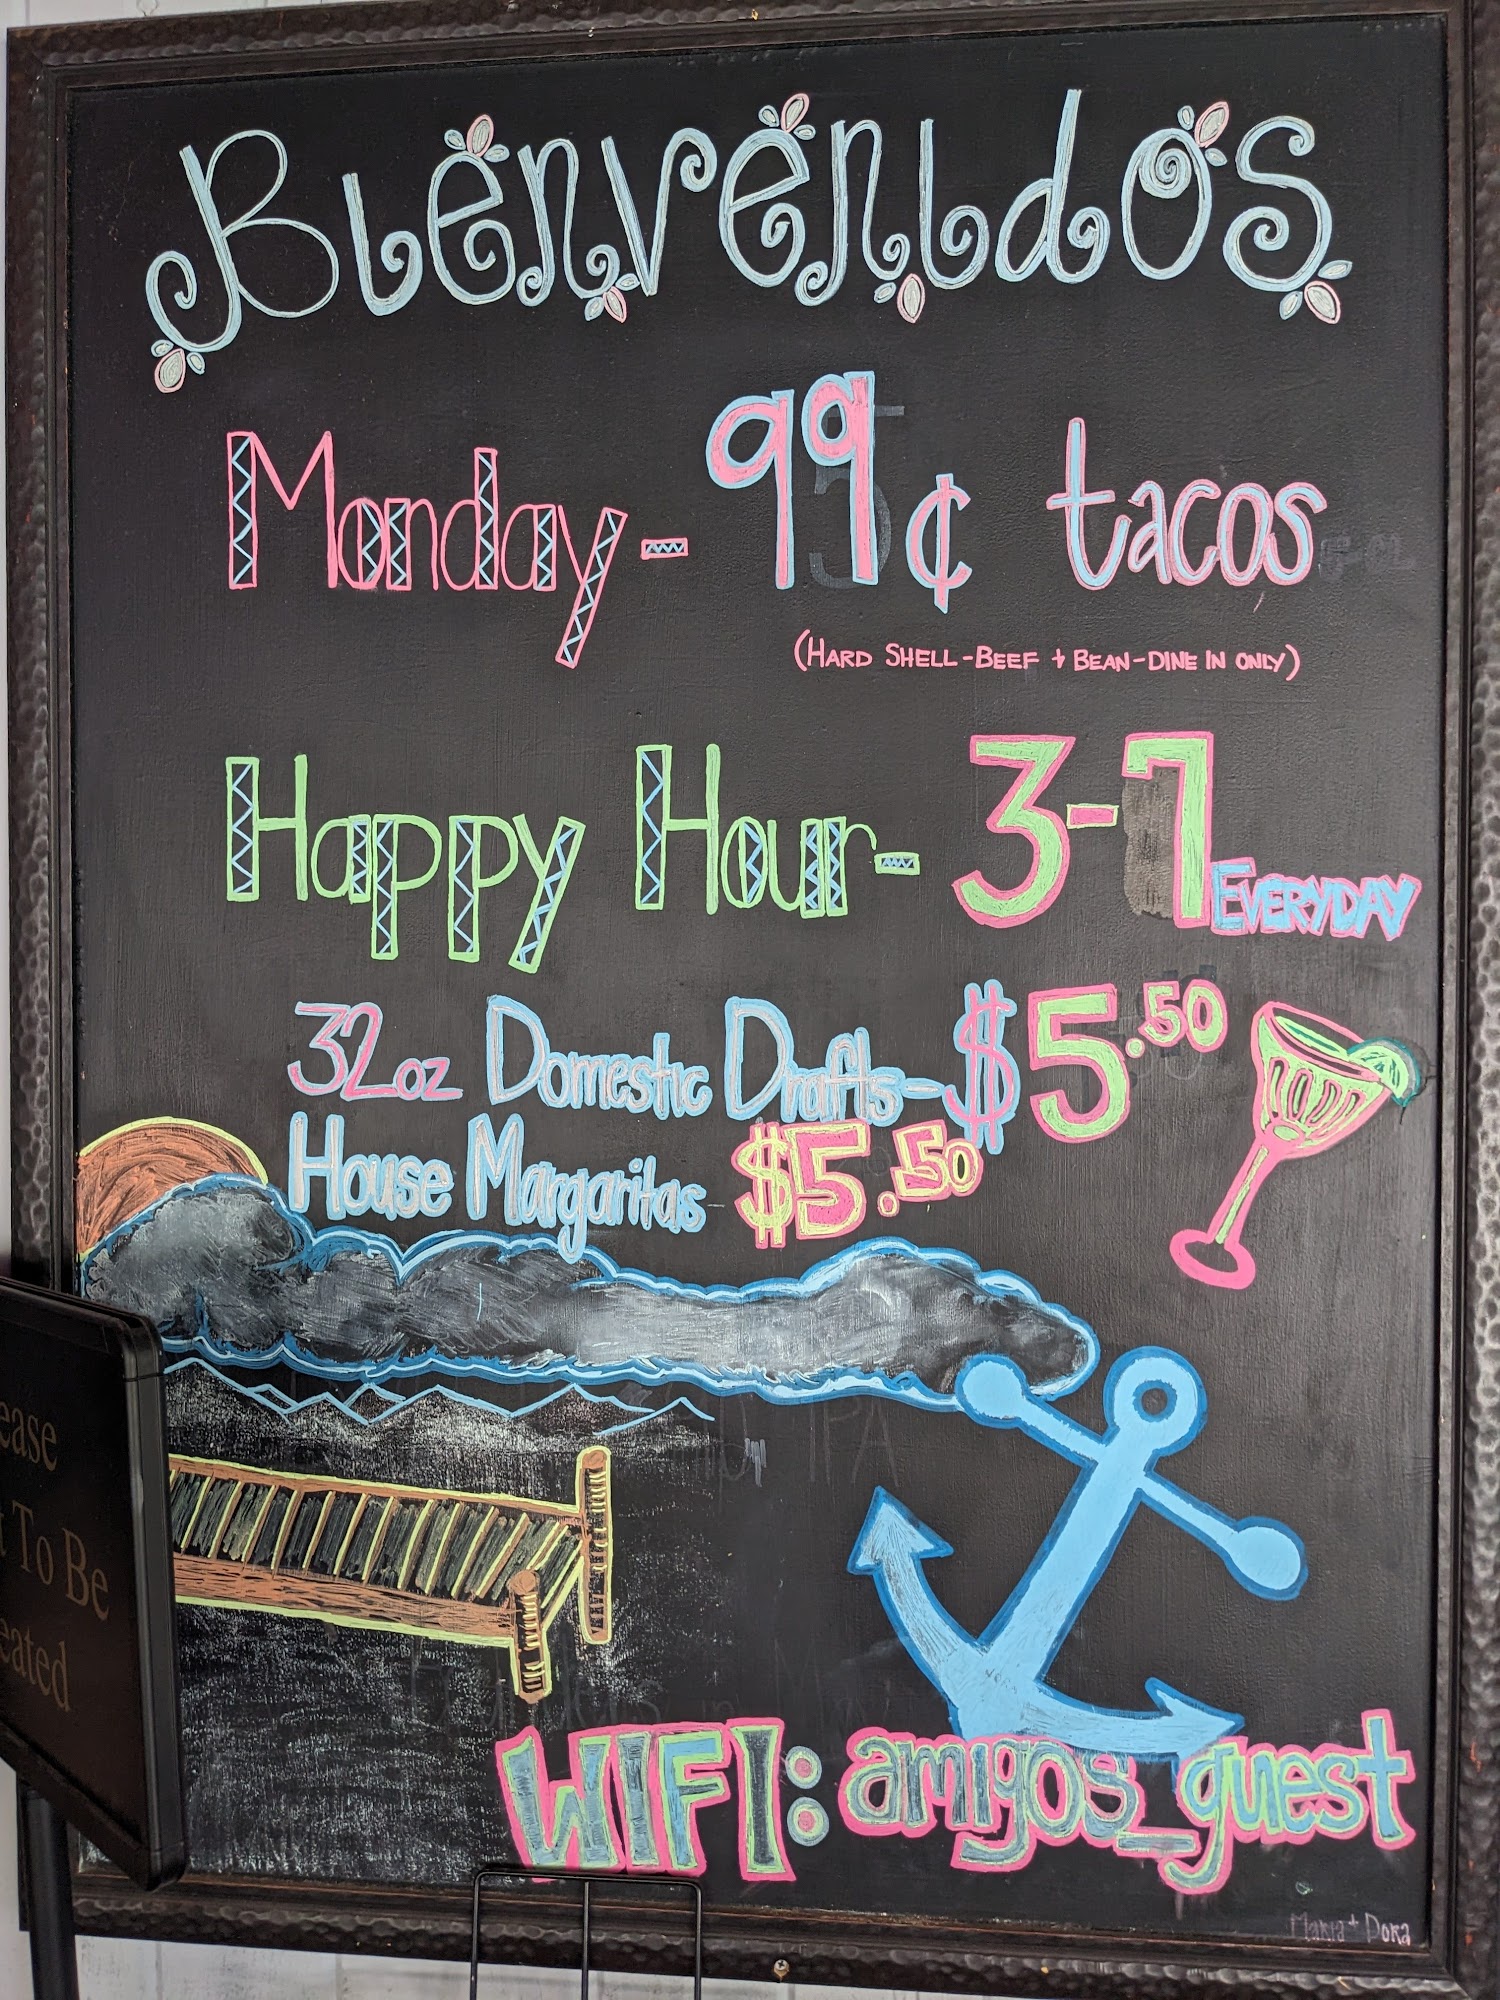 Bienvenidos
Monday - 99¢ tacos
(HARD SHELL-BEEF + BEAN-DINE IN ONLY)
Happy Hour - 3-7 EVERYDAY
32oz Domestic Drafts - $5.50
House Margaritas $5.50
IPA
To Be
WIFI: amigos_guest
Maria + Dora